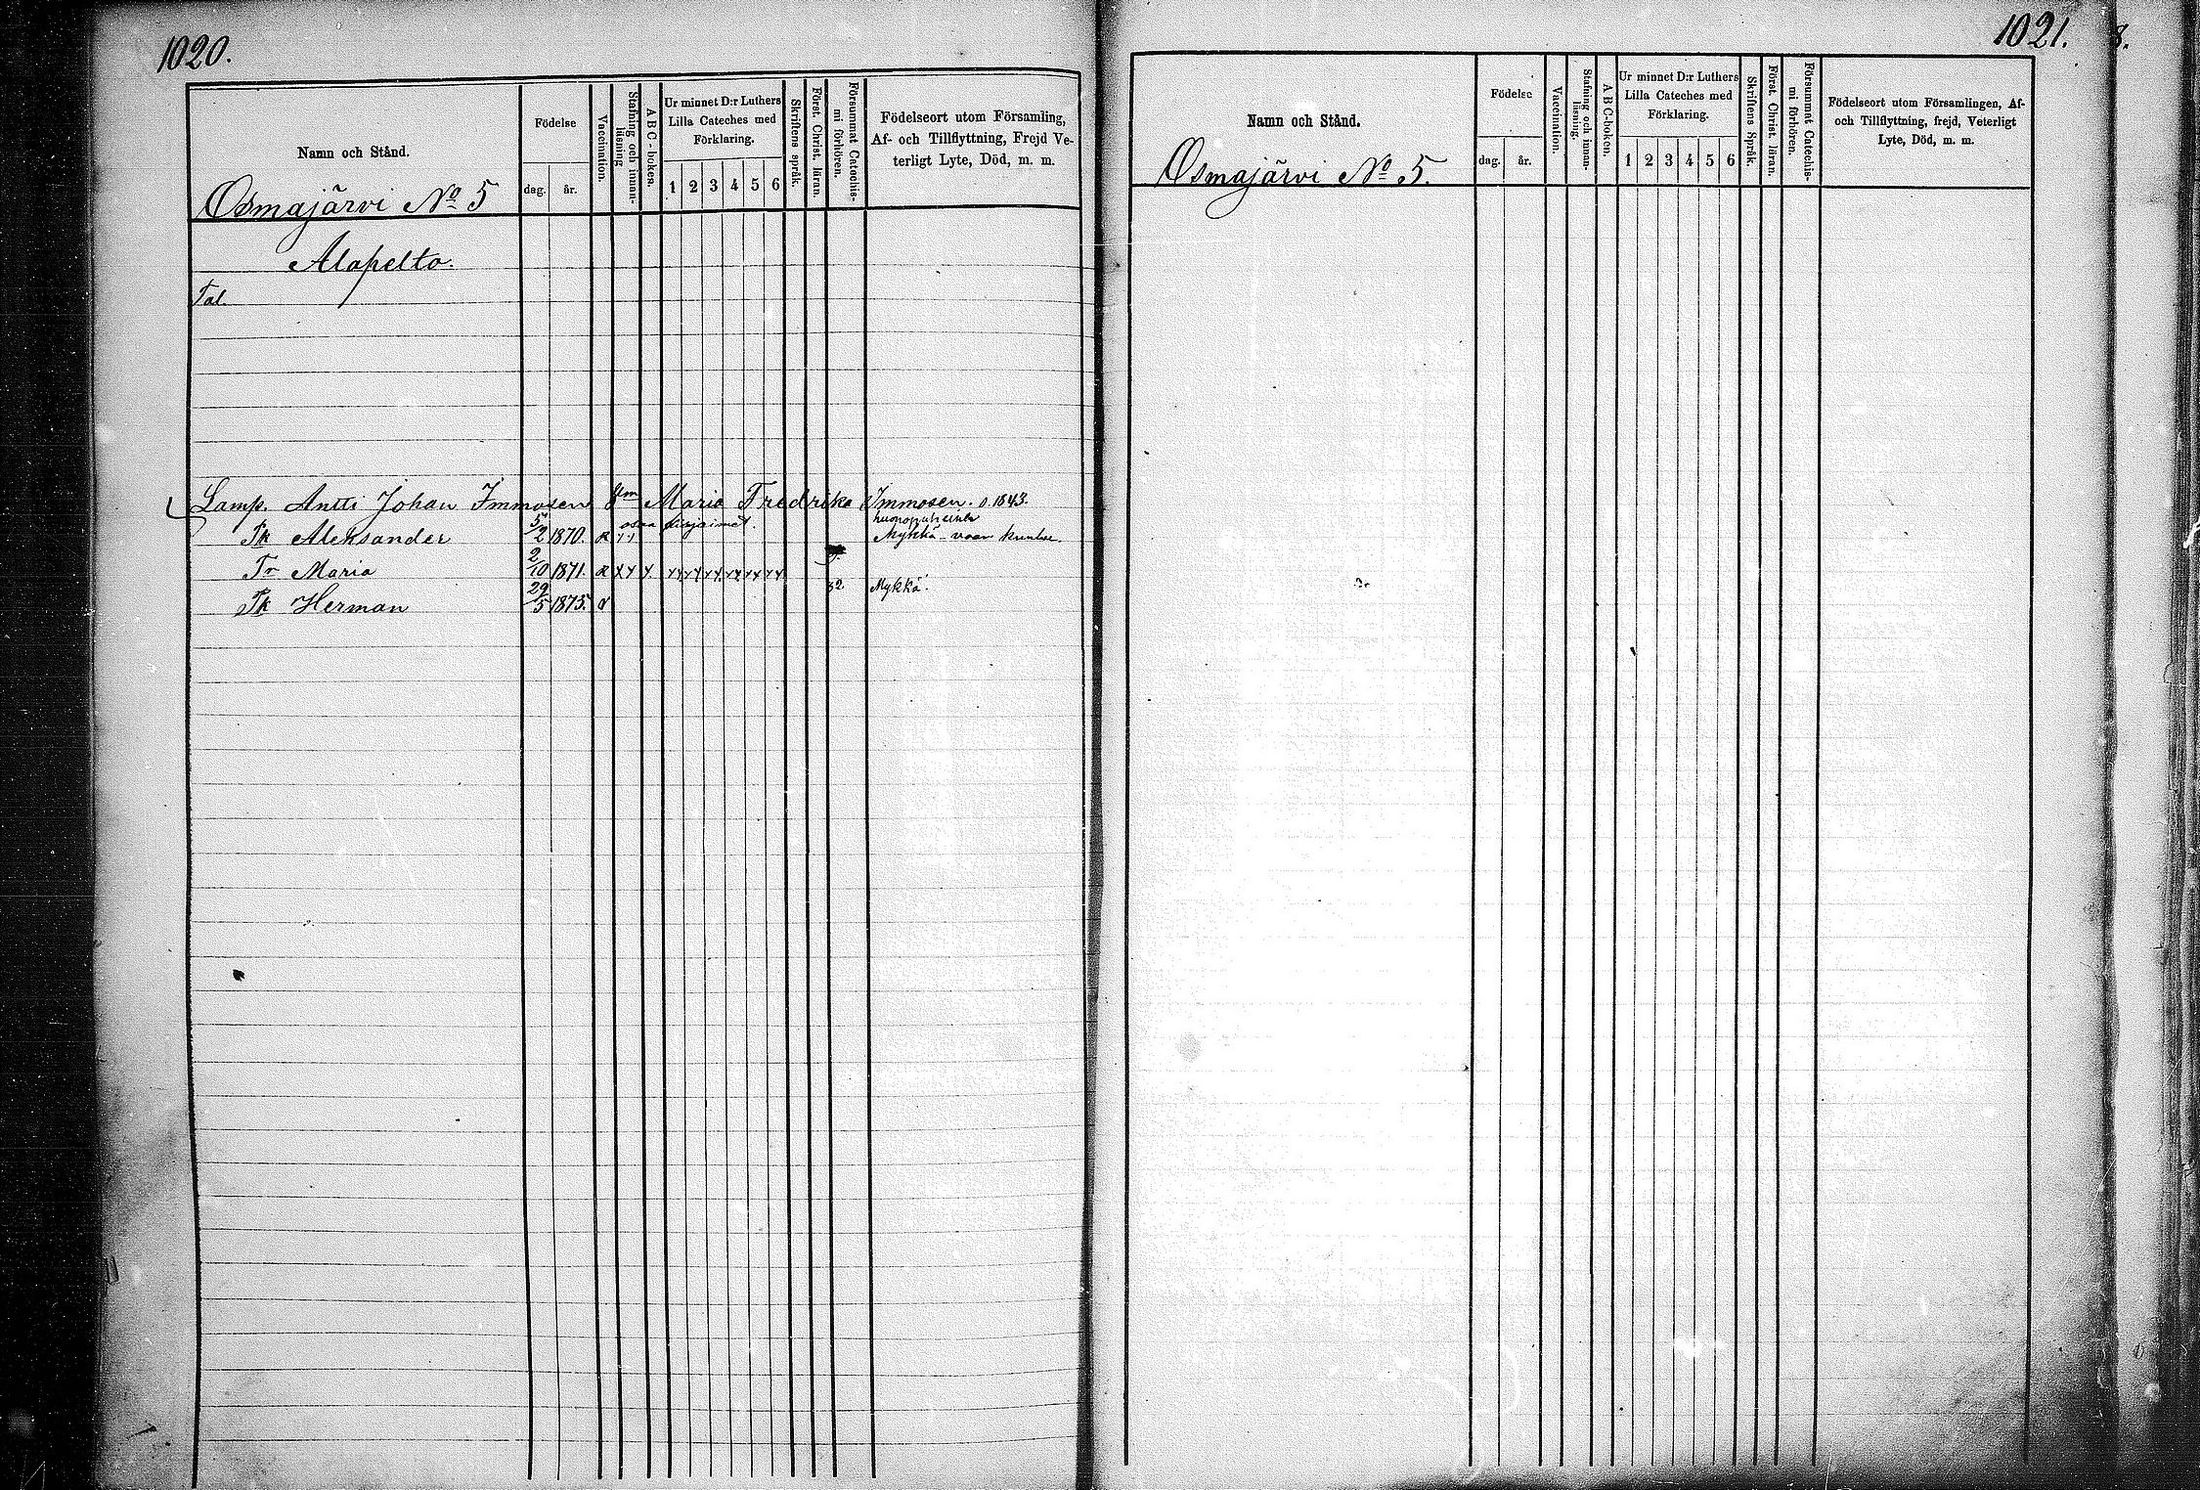 1020.
Namn och Stånd.
Födelse
dag. år.
Vaccination.
Stafning och innan-läsning
ABC-boken.
Ur minnet D:r Luthers
Lilla Cateches med
Förklaring.
1 2 3 4 5 6
Skriftens språk.
Först. Christ. läran.
Försummat Catechis-mi förhören.
Födelseort utom Församling,
Af- och Tillflyttning, Frejd Ve-
terligt Lyte, Död, m. m.
Osmajärvi No 5
Alapelto.
Tal.
Lamp. Antti Johan Immosen Maria Fredrika Immosen. 1843.
osaa
Pk Aleksander 5/2 1870. Mykkä
Tr Maria 2/10 1871.
Pk Herman 29/5 1875. 82 Mykkä.
1021.
8.
Namn och Stånd.
Födelse
dag. år.
Vaccination.
Stafning och innan-läsning.
ABC-boken.
Ur minnet D:r Luthers
Lilla Cateches med
Förklaring.
1 2 3 4 5 6
Skriftens Språk.
Först. Christ. läran.
Försummat Catechis-mi förhören.
Födelseort utom Församlingen, Af-
och Tillflyttning, frejd, Veterligt
Lyte, Död, m. m.
Osmajärvi No 5.